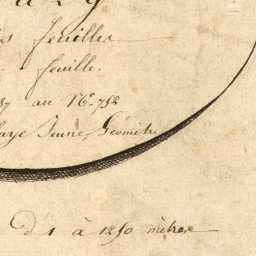 feuilles
feuille.
57 au N.° 752
aye Jeune Géomètre
D'1 à 1250 mètres